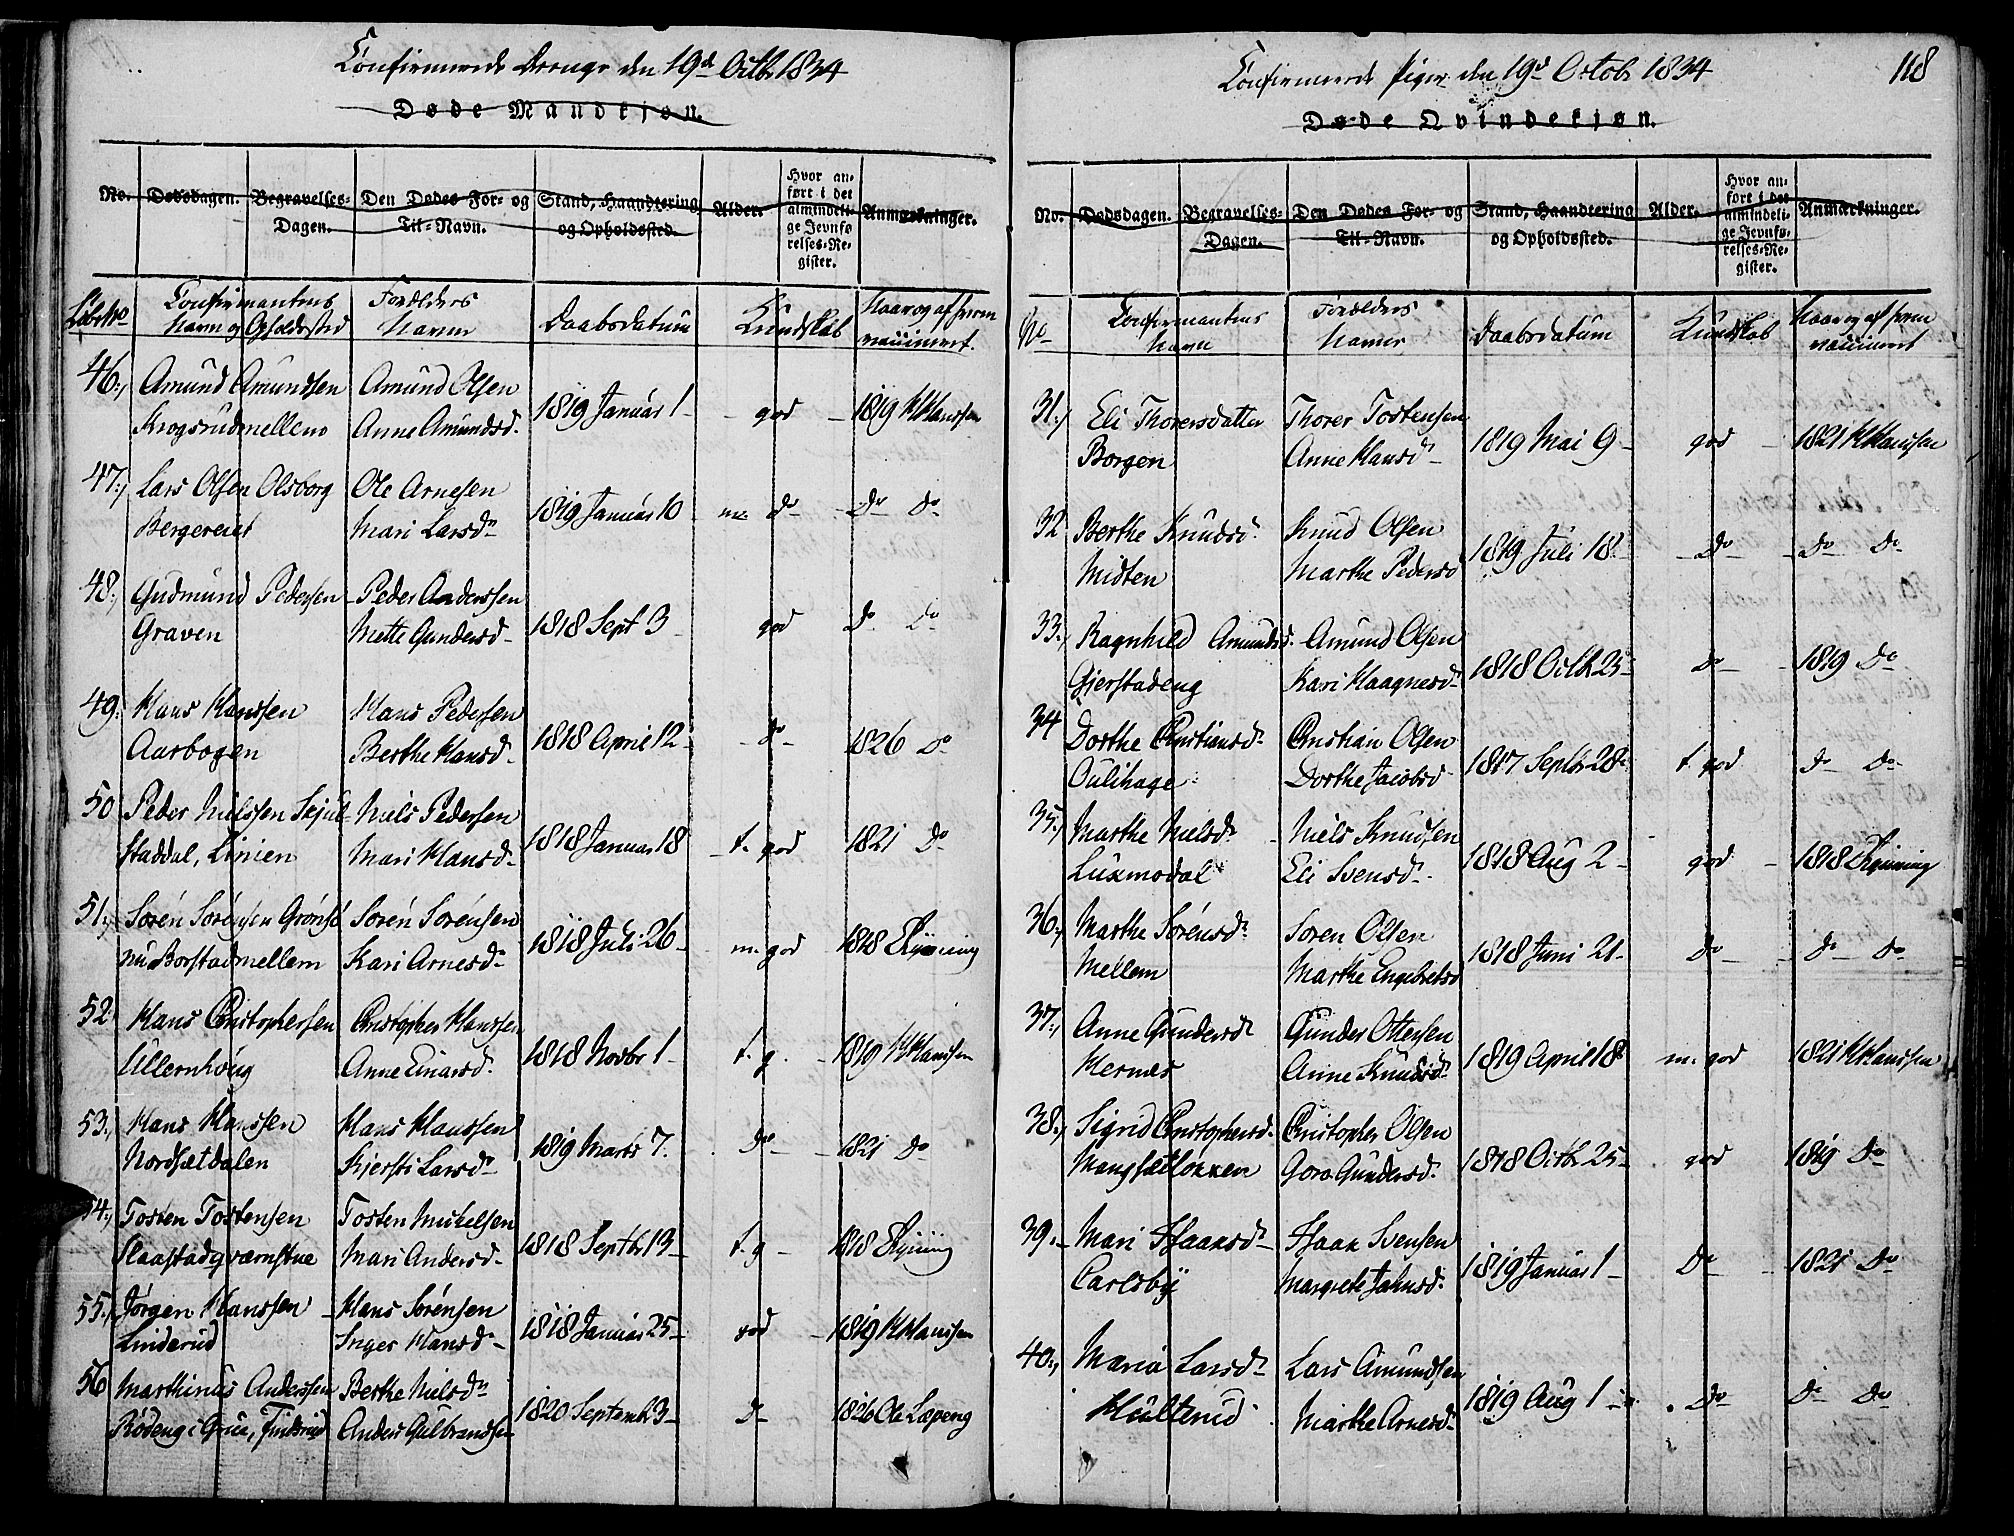 Confirmerede Drenge den 19de Octbr 1834
Døde Mandkjøn.
No. Dødsdagen. Begravelses-Dagen. Den Dødes For- og Til-Navn. Stand, Haandtering og Opholdssted. Alder. Hvor anført i det almindelige Jevnførelses-Register. Anmærkninger.
Løbe No Confirmantens Navn og Opholdssted Forældres Navne Daabsdatum Kundskab Naar og af hvem vaccineret.
46. Amund Amundsen Amund Olsen 1819 Januar 1 god 1819 H Hanssen
Krogsrudmellem Anne Amundsd.
47. Lars Olsen Olsborg Ole Arnesen 1819 Januar 10 m. Do Do Do
Bergereiet Mari Larsdr
48. Gudmund Pedersen Peder Anderssen 1818 Sept 3 god Do Do
Graven Mette Gundersd
49. Hans Hanssen Hans Pedersen 1818 April 12 Do 1826 Do
Aarbogen Berthe Hansd
50 Peder Nielssen Skjul- Niels Pedersen 1818 Januar 18 t. god 1821 Do
staddal, Linien Mari Hansd.
51. Sorén Sorénsen Grønsé Sorén Sorénsen 1818 Juli 26 m. god 1818
nu Borstadmellem Kari Arnesd
52 Hans Christophersen Christopher Hanssen 1818 Novbr 1 t. g. 1819 H Hanssen
Ullernhoug Anne Einarsd.
53. Hans Hanssen Hans Hanssen 1819 Marts 7. Do 1821 Do
Nordsætdalen Kjersti Larsdr
54. Tosten Tostensen Tosten Mikelsen 1818 Septbr 13 t. g 1818
Slaastadqværnstue Mari Andersd.
55. Jørgen Hanssen Hans Sørensen 1818 Januar 25 god 1819 H Hanssen
Linderud Inger Hansd
56 Marthinus Anderssen Berthe Nielsdr 1820 Septemb 3 Do 1826 Ole Løpeng
Rødeng i Grue, Anders Gulbrandsen
Confirmerede Piger den 19de Octobr 1834 118
Døde Qvindekjøn.
No. Dødsdagen. Begravelses-Dagen. Den Dødes For- og Til-Navn. Stand, Haandtering og Opholdssted. Alder. Hvor anført i det almindelige Jevnførelses-Register. Anmærkninger.
No Confirmantens Navn Forældres Navne Daabsdatum Kundskab Naar og af hvem vaccineret
31. Eli Thorersdatter Thorer Tostensen 1819 Mai 9 god 1821 H Hanssen
Borgen Anne Hansd
32 Berthe Knudsd. Knud Olsen 1819 Juli 18 Do Do Do
Midten Marthe Pedersd
33. Ragnhild Amundsd. Amund Olsen 1818 Octbr 25 Do 1819 Do
Gjerstadeng Kari Haagnesd
34 Dorthe Christiansdr Christian Olsen 1817 Septbr 28 t god Do Do
Oulihage Dorthe Jacobsd
35. Marthe Nielsdr Niels Knudsen 1818 Aug 2 god 1818
Luxmodal Eli Svensd
36. Marthe Sørensdr Soren Olsen 1818 Juni 21 Do Do Do
Mellem Marthe Engebretsd
37. Anne Gundersdr Gunder Ottersen 1819 April 18 m. god 1821 H Hanssen
Hernæs Anne Knudsdr
38. Sigrid Christophersd. Christopher Olsen 1818 Octbr 25 god 1819 Do
Mangsætløkken Goro Gundersd.
39. Mari Isaaksd Isaak Svensen 1819 Januar 1 Do 1821 Do
Carlsby Margrete Jahnsd.
40. Maria Larsdr Lars Amundsen 1819 Aug 1 Do Do Do
Hulterud Marthe Arnesd